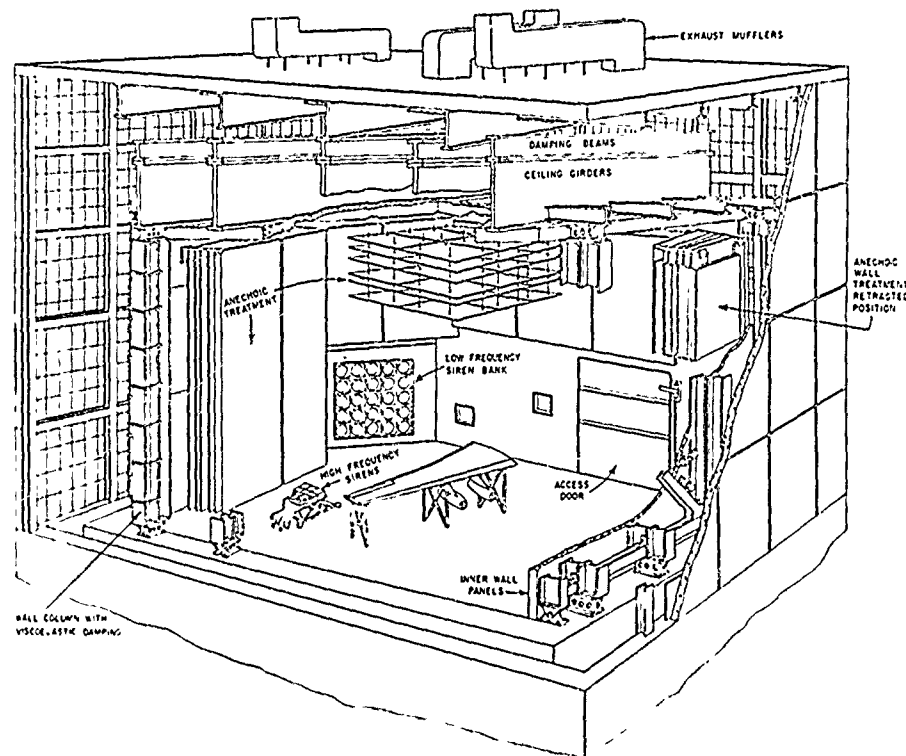 EXHAUST MUFFLERS
DAMPING BEAMS
CEILING GIRDERS
ANECHOIC
TREATMENT
ANECHOIC
WALL
TREATMENT
RETRACTED
POSITION
LOW FREQUENCY
SIREN BANK
HIGH FREQUENCY
SIRENS
ACCESS
DOOR
INNER WALL
PANELS
WALL COLUMN WITH
VISCOELASTIC DAMPING